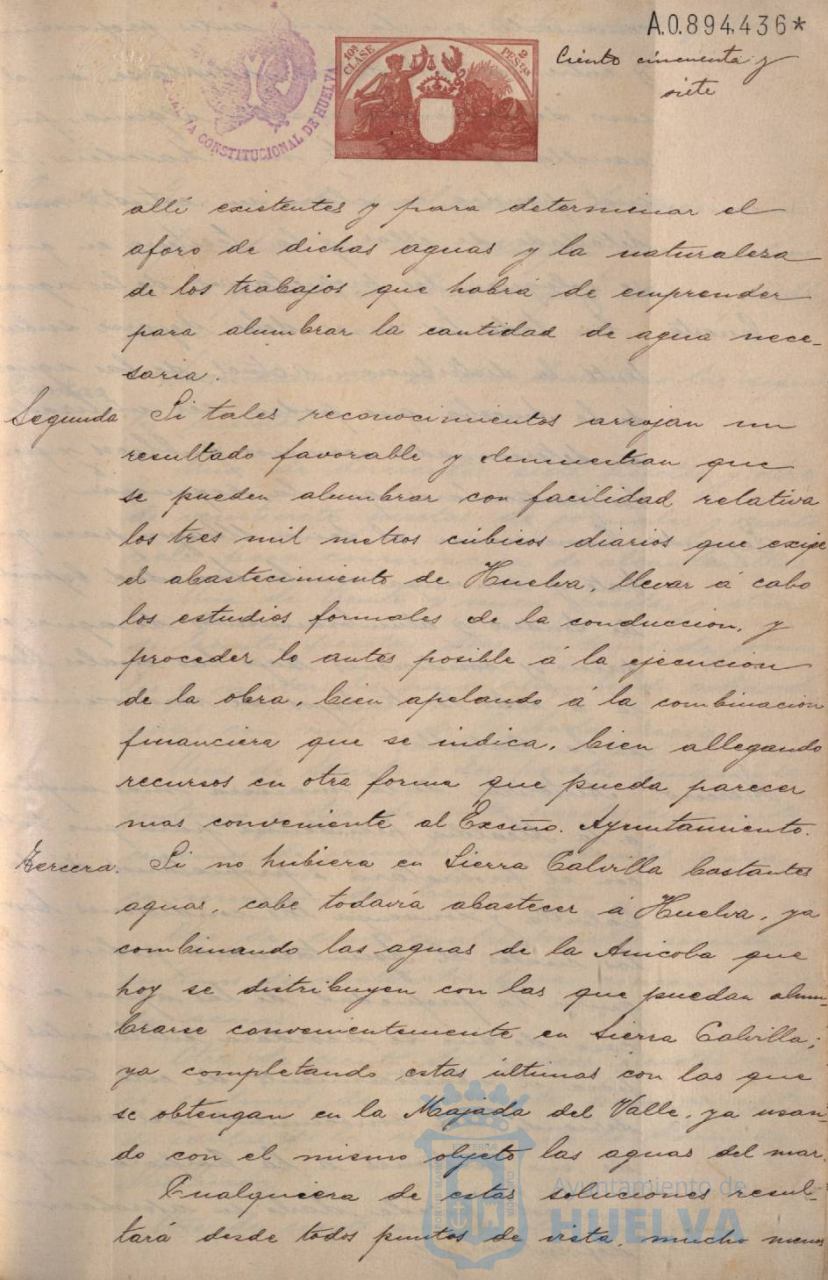 A.0.894.436*
Ciento cincuenta y
siete
10ª CLASE
2 PESETAS
CONSTITUCIONAL DE HUELVA
allí existentes y para determinar el
aforo de dichas aguas y la naturaleza
de los trabajos que habrá de emprender
para alumbrar la cantidad de agua nece-
saria.
Segunda Si tales reconocimientos arrojan un
resultado favorable y demuestran que
se pueden alumbrar con facilidad relativa
los tres mil metros cúbicos diarios que exige
el abastecimiento de Huelva, llevar á cabo
los estudios formales de la conduccion, y
proceder lo antes posible á la ejecucion
de la obra, bien apelando á la combinacion
financiera que se indica, bien allegando
recursos en otra forma que pueda parecer
mas conveniente al Excmo. Ayuntamiento.
Tercera. Si no hubiera en Sierra Calvilla bastantes
aguas, cabe todavía abastecer á Huelva, ya
combinando las aguas de la Anicoba que
hoy se distribuyen con las que puedan alum-
brarse convenientemente en Sierra Calvilla;
ya completando estas últimas con las que
se obtengan en la Majada del Valle, ya usan-
do con el mismo objeto las aguas del mar.
Cualquiera de estas soluciones resul-
tará desde todos puntos de vista, mucho menos
Ayuntamiento de
HUELVA